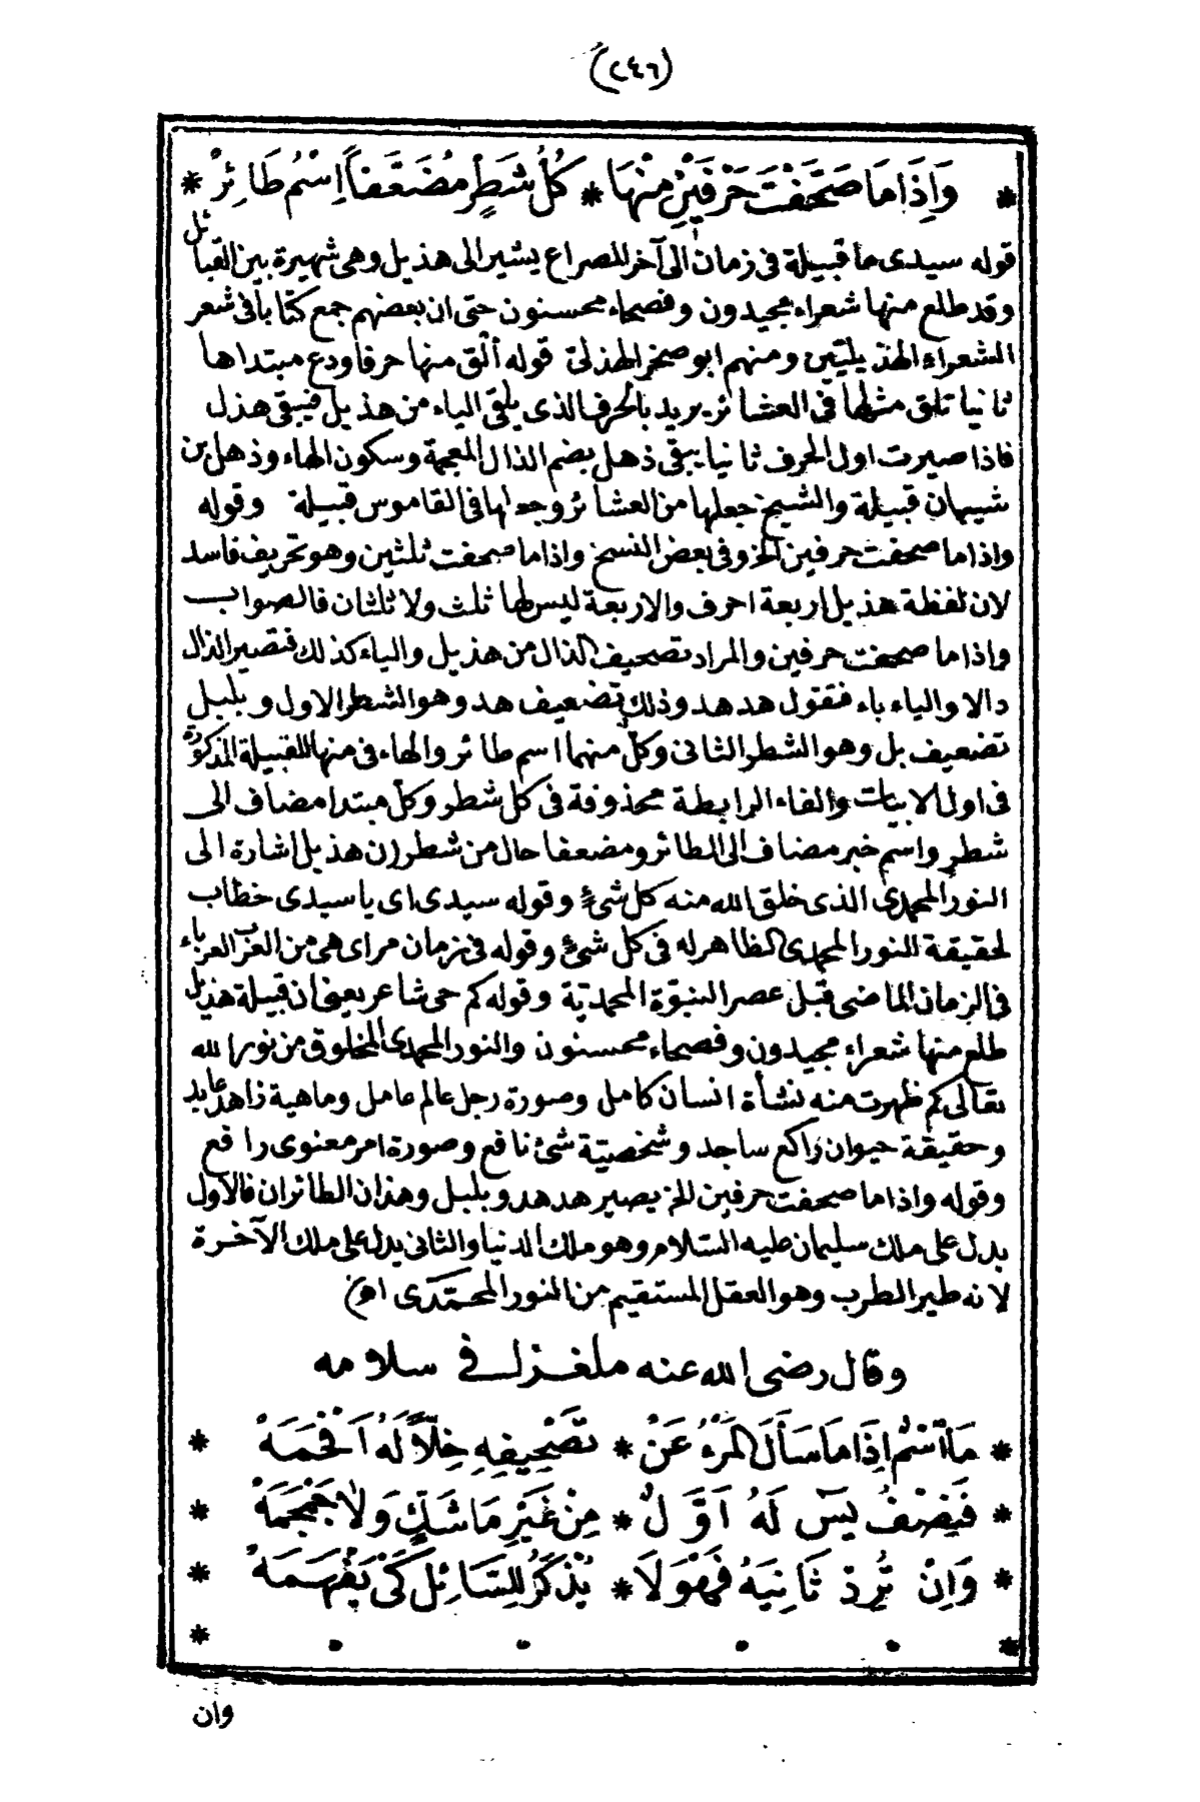 (٢٤٦)
* وَاِذَا مَا صَحَّفْتَ حَرْفَيْنِ مِنْهَا * كُلُّ شَطْرٍ مُضَعَّفاً اِسْمُ طَائِرْ *
قوله سيدى ما قبيلة فى زمان الى آخر المصراع يشير الى هذيل وهى شهيرة بين القبائل
وقد طلع منها شعراء مجيدون وفصحاء محسنون حتى ان بعضهم جمع كتابا فى شعر
الشعراء الهذيليّين ومنهم ابو صخر الهذلىّ قوله ألق منها حرفا ودع مبتداها
ثانيا تلق مثلها فى العشائر يريد بالحرف الذى يلقى الياء من هذيل فيبقى هذل
فاذا صيرت اول الحرف ثانيا يبقى ذهل بضم الذال المعجمة وسكون الهاء وذهل بن
شيبان قبيلة والشيخ جعلها من العشائر وجعلها فى القاموس قبيلة وقوله
واذا ما صحفت حرفين الخ وفى بعض النسخ واذا ما صحفت ثلثين وهو تحريف فاسد
لان لفظة هذيل اربعة احرف والاربعة ليس لها ثلث ولا ثلثان فالصواب
واذا ما صحفت حرفين والمراد تصحيف الذال من هذيل والياء كذلك فتصير الذال
دالا والياء باء فتقول هدهد وذلك تضعيف هد وهو الشطر الاول وبلبل
تضعيف بل وهو الشطر الثانى وكلّ منهما اسم طائر والهاء فى منها للقبيلة المذكورة
فى اول الابيات والفاء الرابطة محذوفة فى كل شطر وكلّ مبتدا مضاف الى
شطر واسم خبر مضاف الى الطائر ومضعفا حال من شطر (ن) هذيل اشارة الى
النور المحمدى الذى خلق الله منه كل شئ وقوله سيدى اى يا سيدى خطاب
لحقيقة النور المحمدى الظاهر له فى كل شئ وقوله فى زمان مر اى هى من العرب العرباء
فى الزمان الماضى قبل عصر النبوّة المحمديّة وقوله كم حى شاعر يعنى ان قبيلة هذيل
طلع منها شعراء مجيدون وفصحاء محسنون والنور المحمدى المخلوق من نور الله
تعالى كم ظهرت منه نشأة انسان كامل وصورة رجل عالم عامل وماهية زاهد عابد
وحقيقة حيوان راكع ساجد وشخصيّة شئ نافع وصورة امر معنوى رافع
وقوله واذا ما صحفت حرفين الخ يصير هدهد وبلبل وهذان الطائران فالاول
يدل على ملك سليمان عليه السلام وهو ملك الدنيا والثانى يدل على ملك الآخرة
لانه طير الطرب وهو العقل المستقيم من النور المحمّدى اهـ
وقال رضى الله عنه ملغزا فى سلامه
* مَا اسْمٌ اِذَا مَا سَأَلَ الْمَرْءُ عَنْ * تَصْحِيفِهِ خِلّاً لَهُ اَفْحَمَهْ *
* فَنِصْفُ يٰسٓ لَهُ اَوَّلٌ * مِنْ غَيْرِ مَا شَكٍّ وَلَا جَمْجَمَهْ *
* وَاِنْ تُرِدْ ثَانِيَهُ فَهْوَ لَا * يُذْكَرُ لِلسَّائِلِ كَىْ يَفْهَمَهْ *
وان